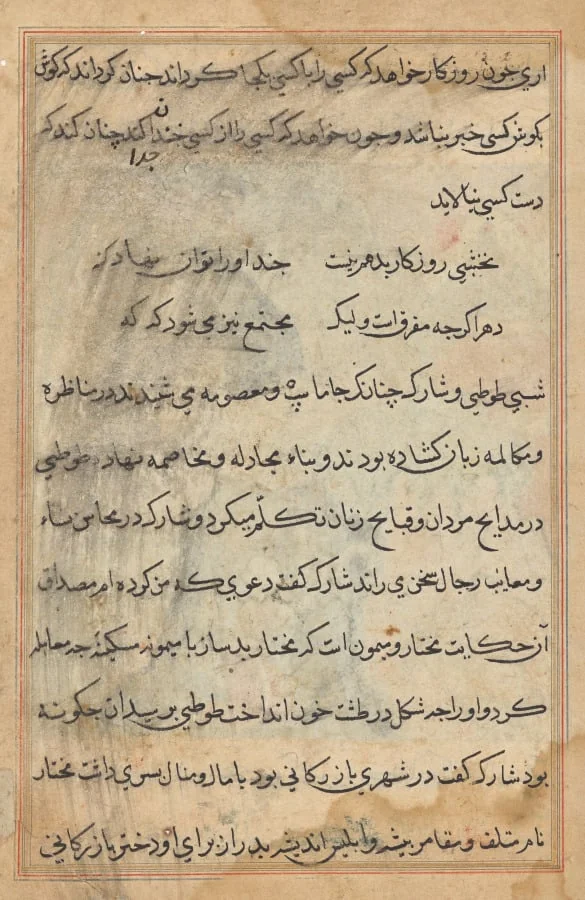 اری چون روزکار خواهد که کسی را با کسی یکجا کرداند چنان کرداند که کوش
بکوش کسی خبر نباشد و چون خواهد که کسی را از کسی جدا کند چنان کند که
دست کسی نیالاید
نخشبی روزکار بدهریست چند او را توان نهاد که
دهر اکرچه مفرق است ولیک مجتمع نیز می شود که که
شبی طوطی و شارک چنانک جاماسپ و معصومه می شنیدند در مناظره
و مکالمه زبان کشاده بودند و بناء مجادله و مخاصمه نهاده طوطی
در مدایح مردان و قبایح زنان تکلّم میکرد و شارک در محاسن نساء
و معایب رجال سخن می راند شارک کفت دعوی که من کرده ام مصداق
آن حکایت مختار و میمون است که مختار بدساز با میمونه مسکینه چه معامله
کرد و او را چه شکل در طشت خون انداخت طوطی پرسید ان چکونه
بود شارک کفت در شهری بازرکانی بود با مال و منال پسری داشت مختار
نام متلف و مقامر پیشه و ابلیس اندیشه پدر از برای او دختر بازرکانی